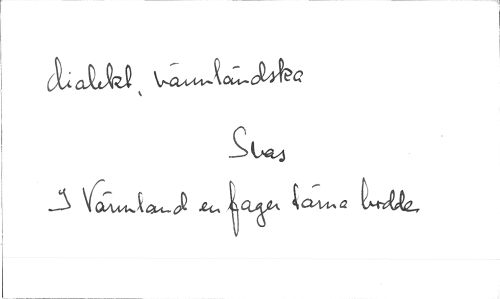 dialekt, värmländska
Svas
I Värmland en fager tärna bodde